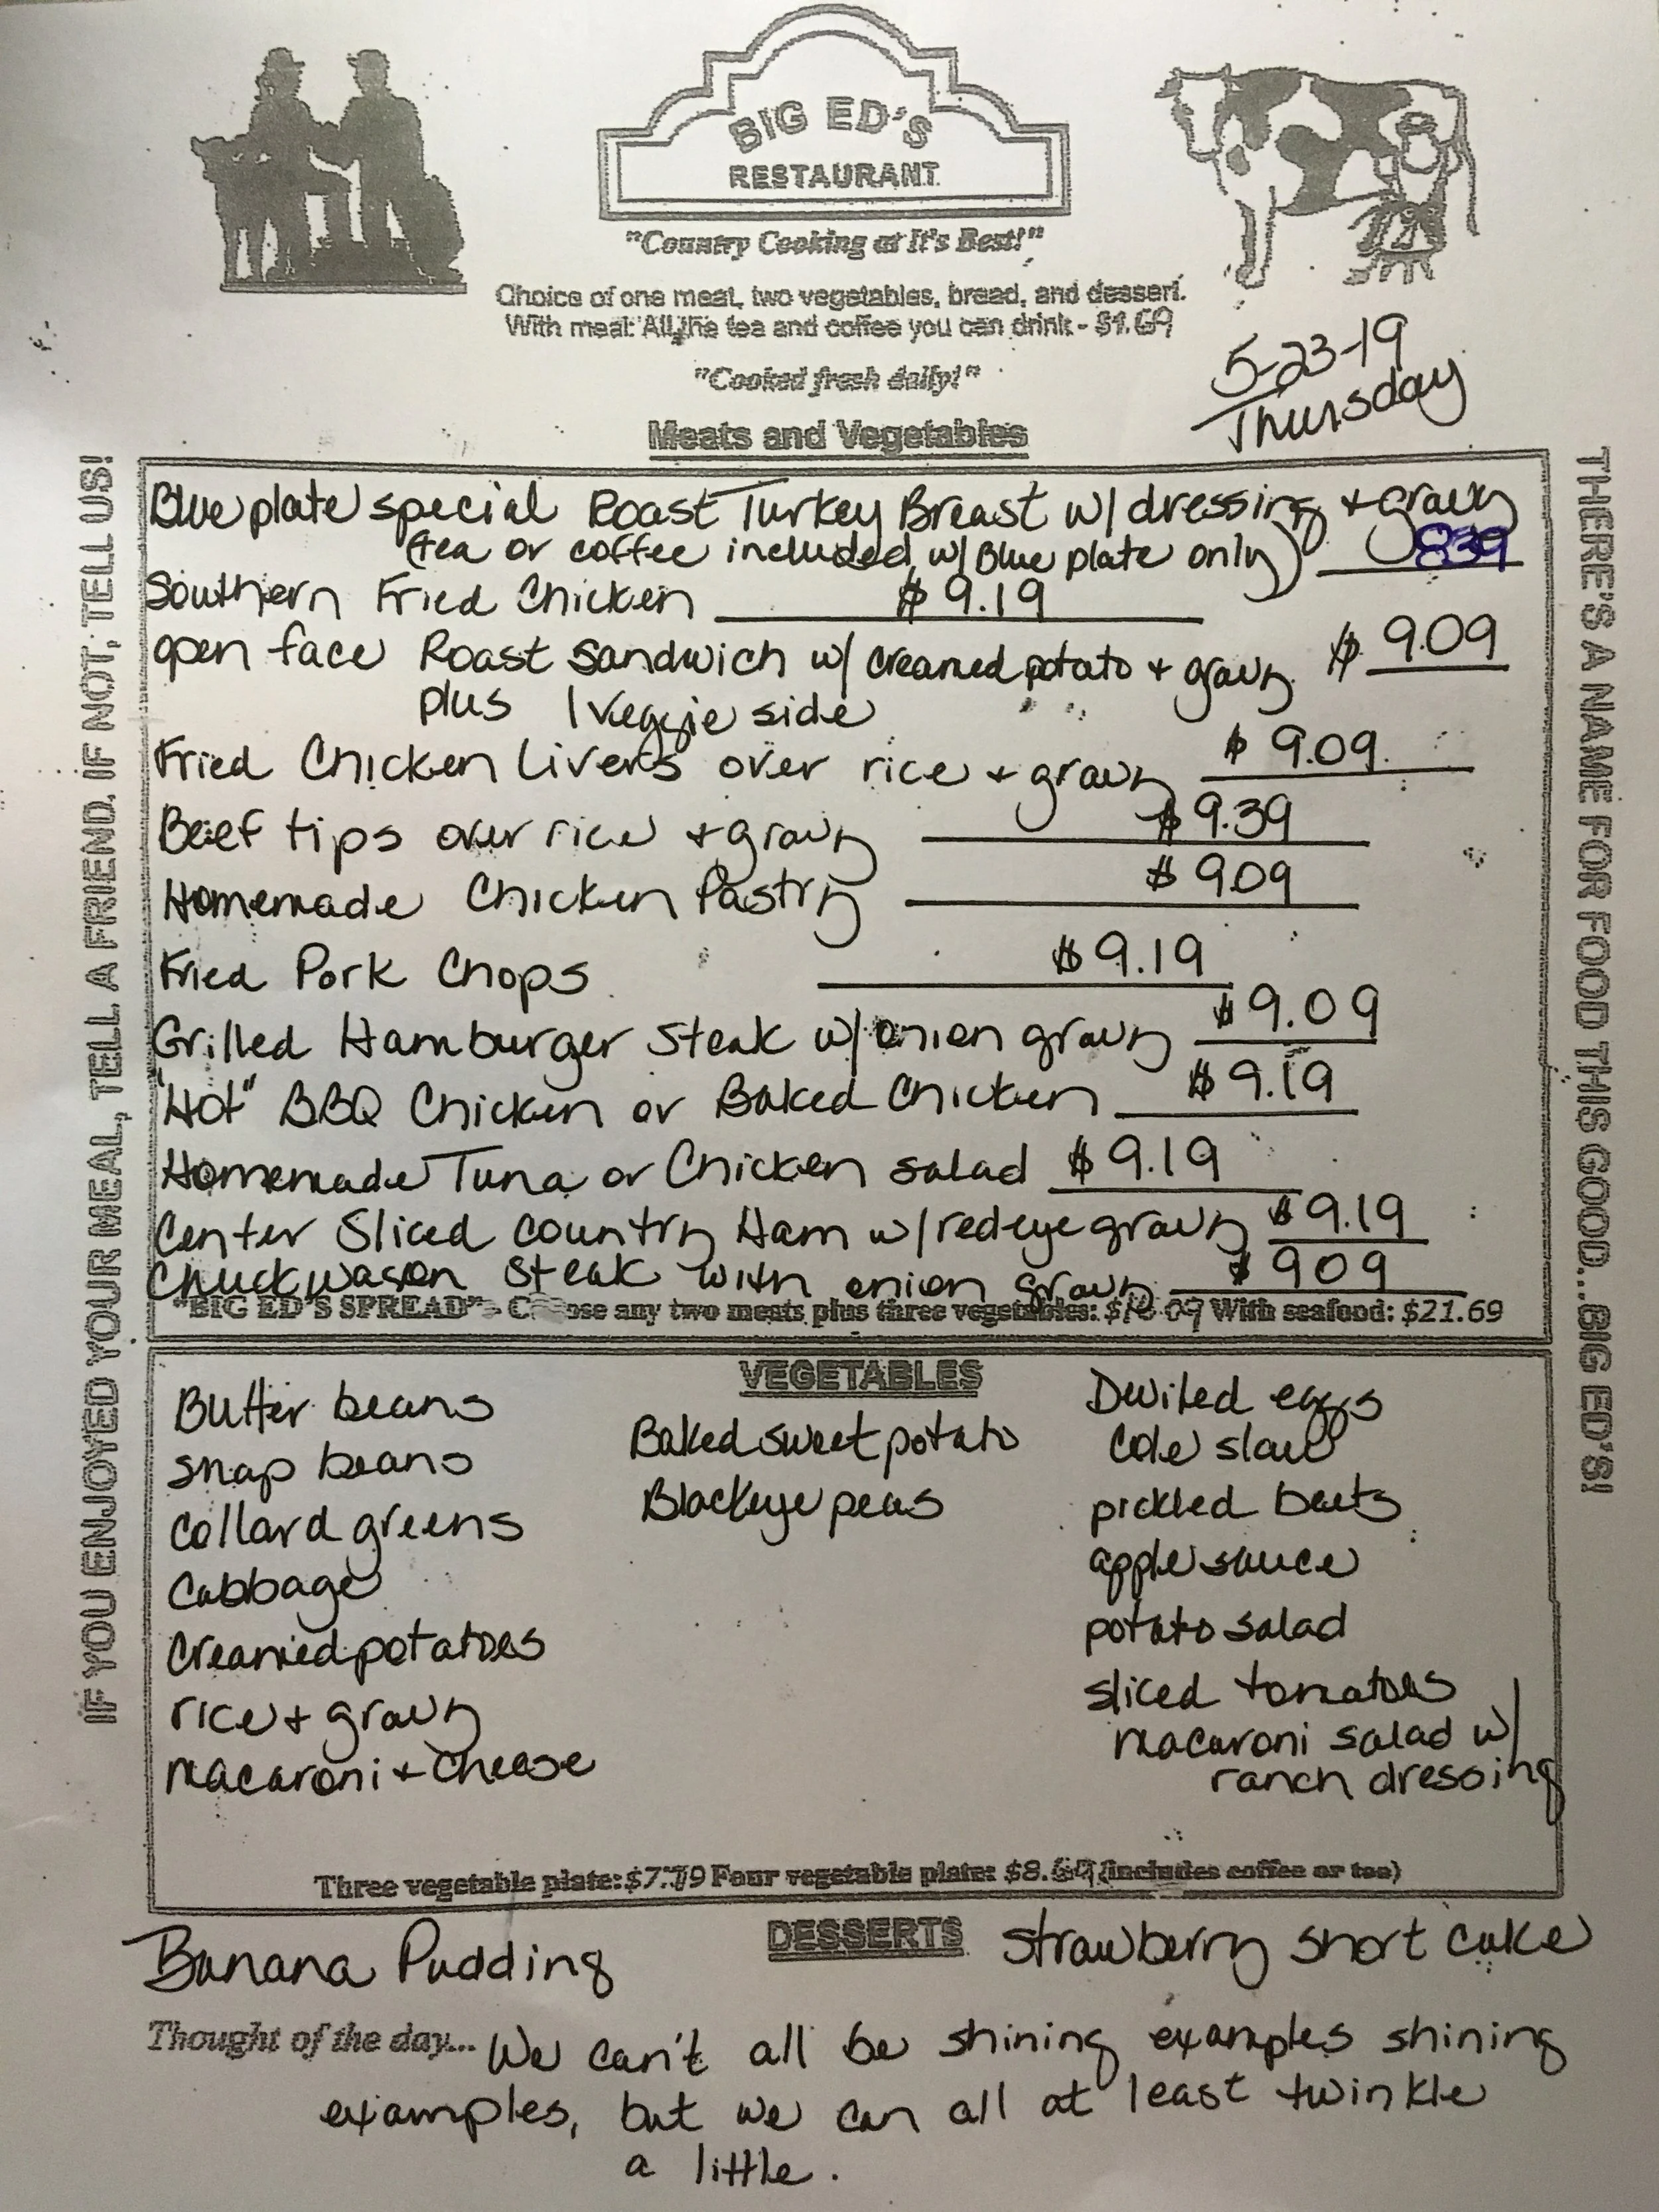 BIG ED'S
RESTAURANT
"Country Cooking at It's Best!"
Choice of one meat, two vegetables, bread, and dessert.
With meal: All the tea and coffee you can drink - $1.69
"Cooked fresh daily!"
5-23-19
Thursday
Meats and Vegetables
IF YOU ENJOYED YOUR MEAL, TELL A FRIEND. IF NOT, TELL US!
THERE'S A NAME FOR FOOD THIS GOOD...BIG ED'S!
Blue plate special Roast Turkey Breast w/ dressing + gravy
(tea or coffee included w/ Blue plate only) 839
Southern Fried Chicken $9.19
open face Roast Sandwich w/ creamed potato + gravy $ 9.09
plus 1 veggie side
Fried Chicken Livers over rice + gravy $ 9.09
Beef tips over rice + gravy $9.39
Homemade Chicken Pastry $ 9.09
Fried Pork Chops $9.19
Grilled Hamburger Steak w/ onion gravy $9.09
"Hot" BBQ Chicken or Baked Chicken $9.19
Homemade Tuna or Chicken salad $9.19
Center Sliced Country Ham w/ redeye gravy $9.19
Chuckwagon Steak with onion gravy $909
"BIG ED'S SPREAD" - Choose any two meats plus three vegetables: 09 With seafood: $21.69
VEGETABLES
Butter beans
snap beans
collard greens
Cabbage
Creamed potatoes
rice + gravy
macaroni + cheese
Baked sweet potato
Blackeye peas
Deviled eggs
Cole slaw
pickled beets
apple sauce
potato salad
sliced tomatoes
macaroni salad w/
ranch dressing
Three vegetable plate: $7.79 Four vegetable plate: $8.69 (includes coffee or tea)
DESSERTS
Banana Pudding
Strawberry short cake
Thought of the day... We can't all be shining examples shining
examples, but we can all at least twinkle
a little.